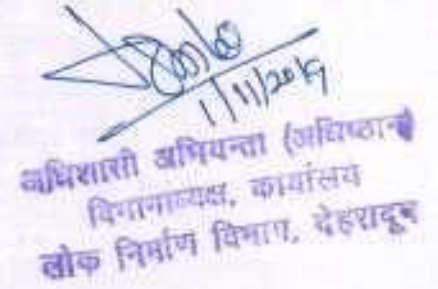 1/11/2019
अधिशासी अभियन्ता (अधिष्ठान)
विभागाध्यक्ष, कार्यालय
लोक निर्माण विभाग, देहरादून